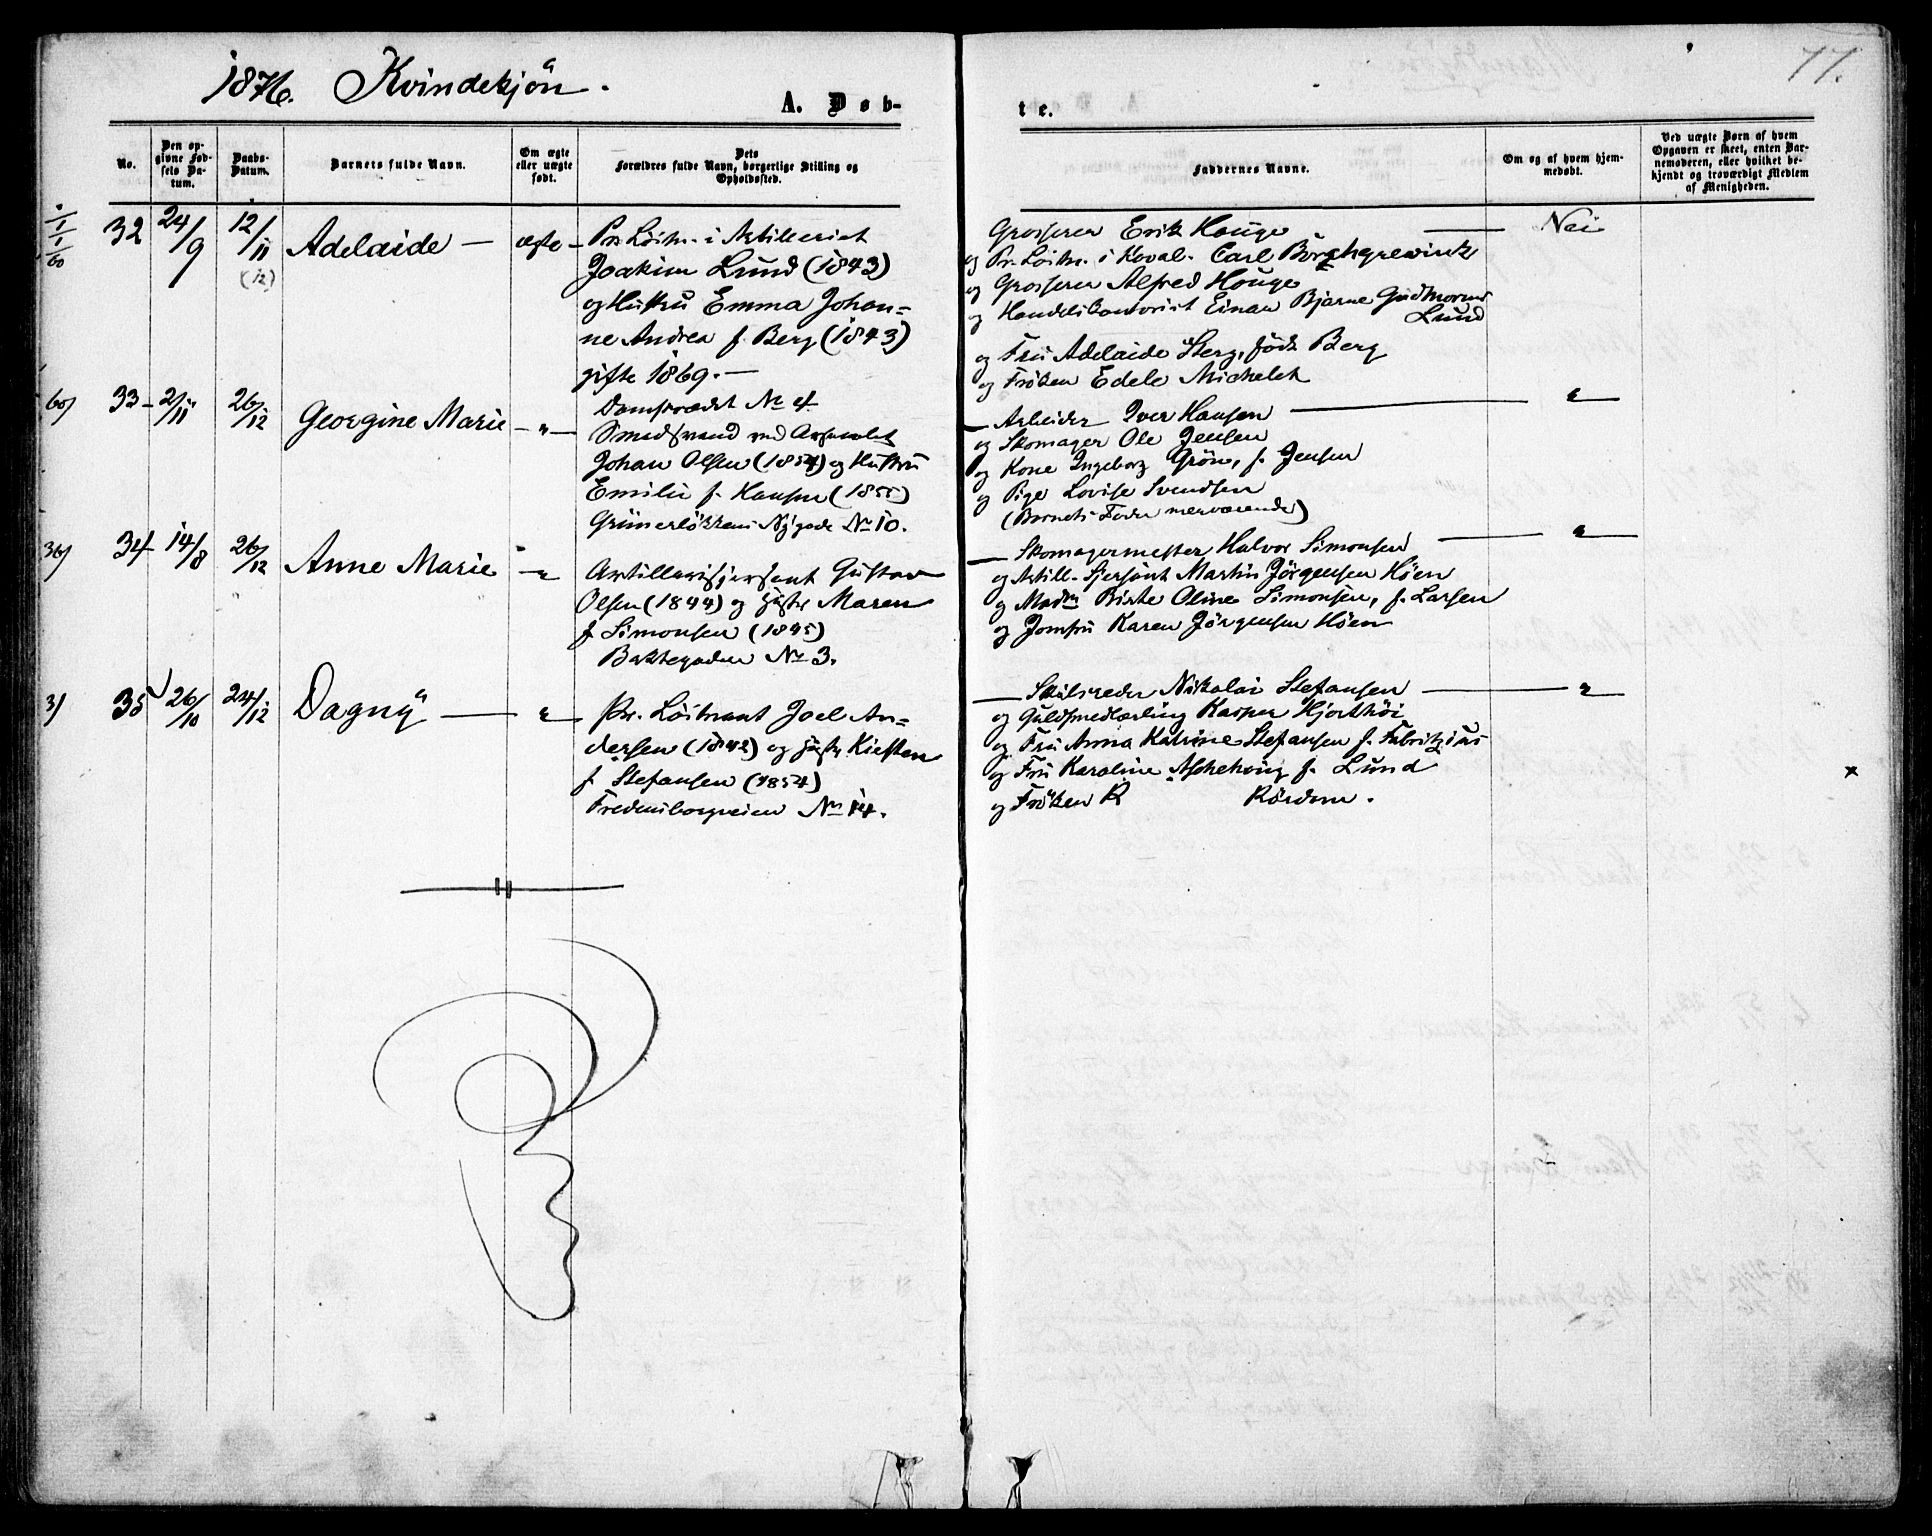 77.
1876. Kvindekjön.
A. Døb-
te.
No.
Den op-
givne Fød-
sels Da-
tum.
Daabs-
Datum.
Barnets fulde Navn.
Om ægte
eller uægte
født.
Dets
Forældres fulde Navn, borgerlige Stilling og
Opholdssted.
Faddernes Navne.
Om og af hvem hjem-
medøbt.
Ved uægte Børn af hvem
Opgaven er skeet, enten Bar-
nemoderen, eller hvilket be-
kjendt og troværdigt Medlem
af Menigheden.
32 24/9 12/11 (12) Adelaide — ægte —
Pr. Löitn. i Artilleriet
Joakim Lund (1843)
og Hustru Emma Johan=
ne Andrea f. Berg (1843)
gifte 1869. —
Grosserer Erik Hauge — Nei
og Pr. Löitn. i Kaval. Carl Borchgrevink
og Grosserer Alfred Hauge
og Handelskontorist Einar Bjarne Gudmorund
Lund
og Fru Adelaide Sterg, födt Berg
og Fröken Edele Michelet
33 — 2/11 26/12 Georgine Marie — " —
Smedsvend ved Arsenalet
Johan Olsen (1854) og Hustru
Emilie f. Hansen (1855)
Grünerlökkens Nygade No 10.
— Arbeider Iver Hansen — "
og Skomager Ole Jensen
og Kone Ingeborg Grön, f. Jensen
og Pige Lovise Svendsen
(Barnets Fader nærværende)
36) 34 14/8 26/12 Anne Marie — "
Artillerisjersant Gustav
Olsen (1844) og Hustr Maren
f Simonsen (1845)
Bakkegaden No 3.
— Skomagermester Halvor Simonsen — "
og Artill. Sjersant Martin Jörgensen Höen
og Madm Birte Oline Simonsen, f. Larsen
og Jomfru Karen Jörgensen Höen
3) 35 26/10 24/12 Dagny — "
Pr. Löitnant Joel An=
dersen (1842) og Hustr Kirsten
f Stefansen (1854)
Fredensborgveien No 14.
— Skibsreder Nikolai Stefansen — "
og Guldsmedlærling Kasper Hjorthöi
og Fru Anna Katrine Stefansen f. Fabritzius
og Fru Karoline Aschehoug f. Lund
og Fröken R Rördam.
x